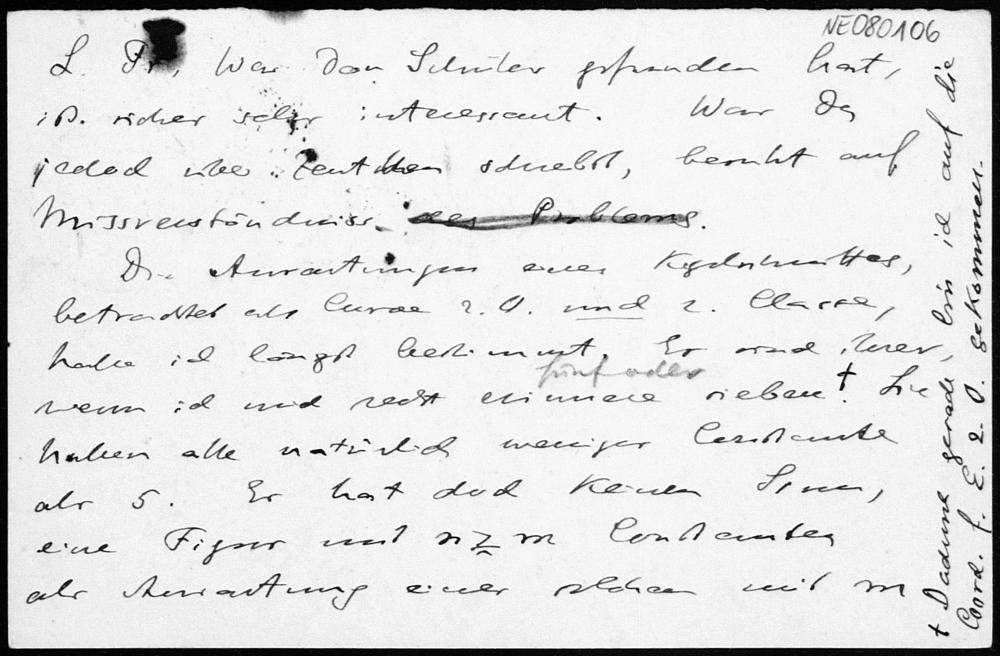 NE080106
L. Fr., Was Dein Schüler gefunden hat,
ist sicher sehr interessant. Was Du
jedoch über Zeuthen schreibst, beruht auf
Missverständniss. des Problems.
Die Ausartungen eines Kegelschnittes,
betrachtet als Curve 2. O. und 2. Classe,
habe ich längst bestimmt. Es sind ihrer,
fünf oder
wenn ich mich recht erinnere sieben†. Sie
haben alle natürlich weniger Constante
als 5. Es hat doch keinen Sinn,
eine Figur mit n ≥ m Constanten
als Ausartung einer solchen mit m
† Dadurch gerade bin ich auf die
Coord. f. E. 2. O. gekommen.